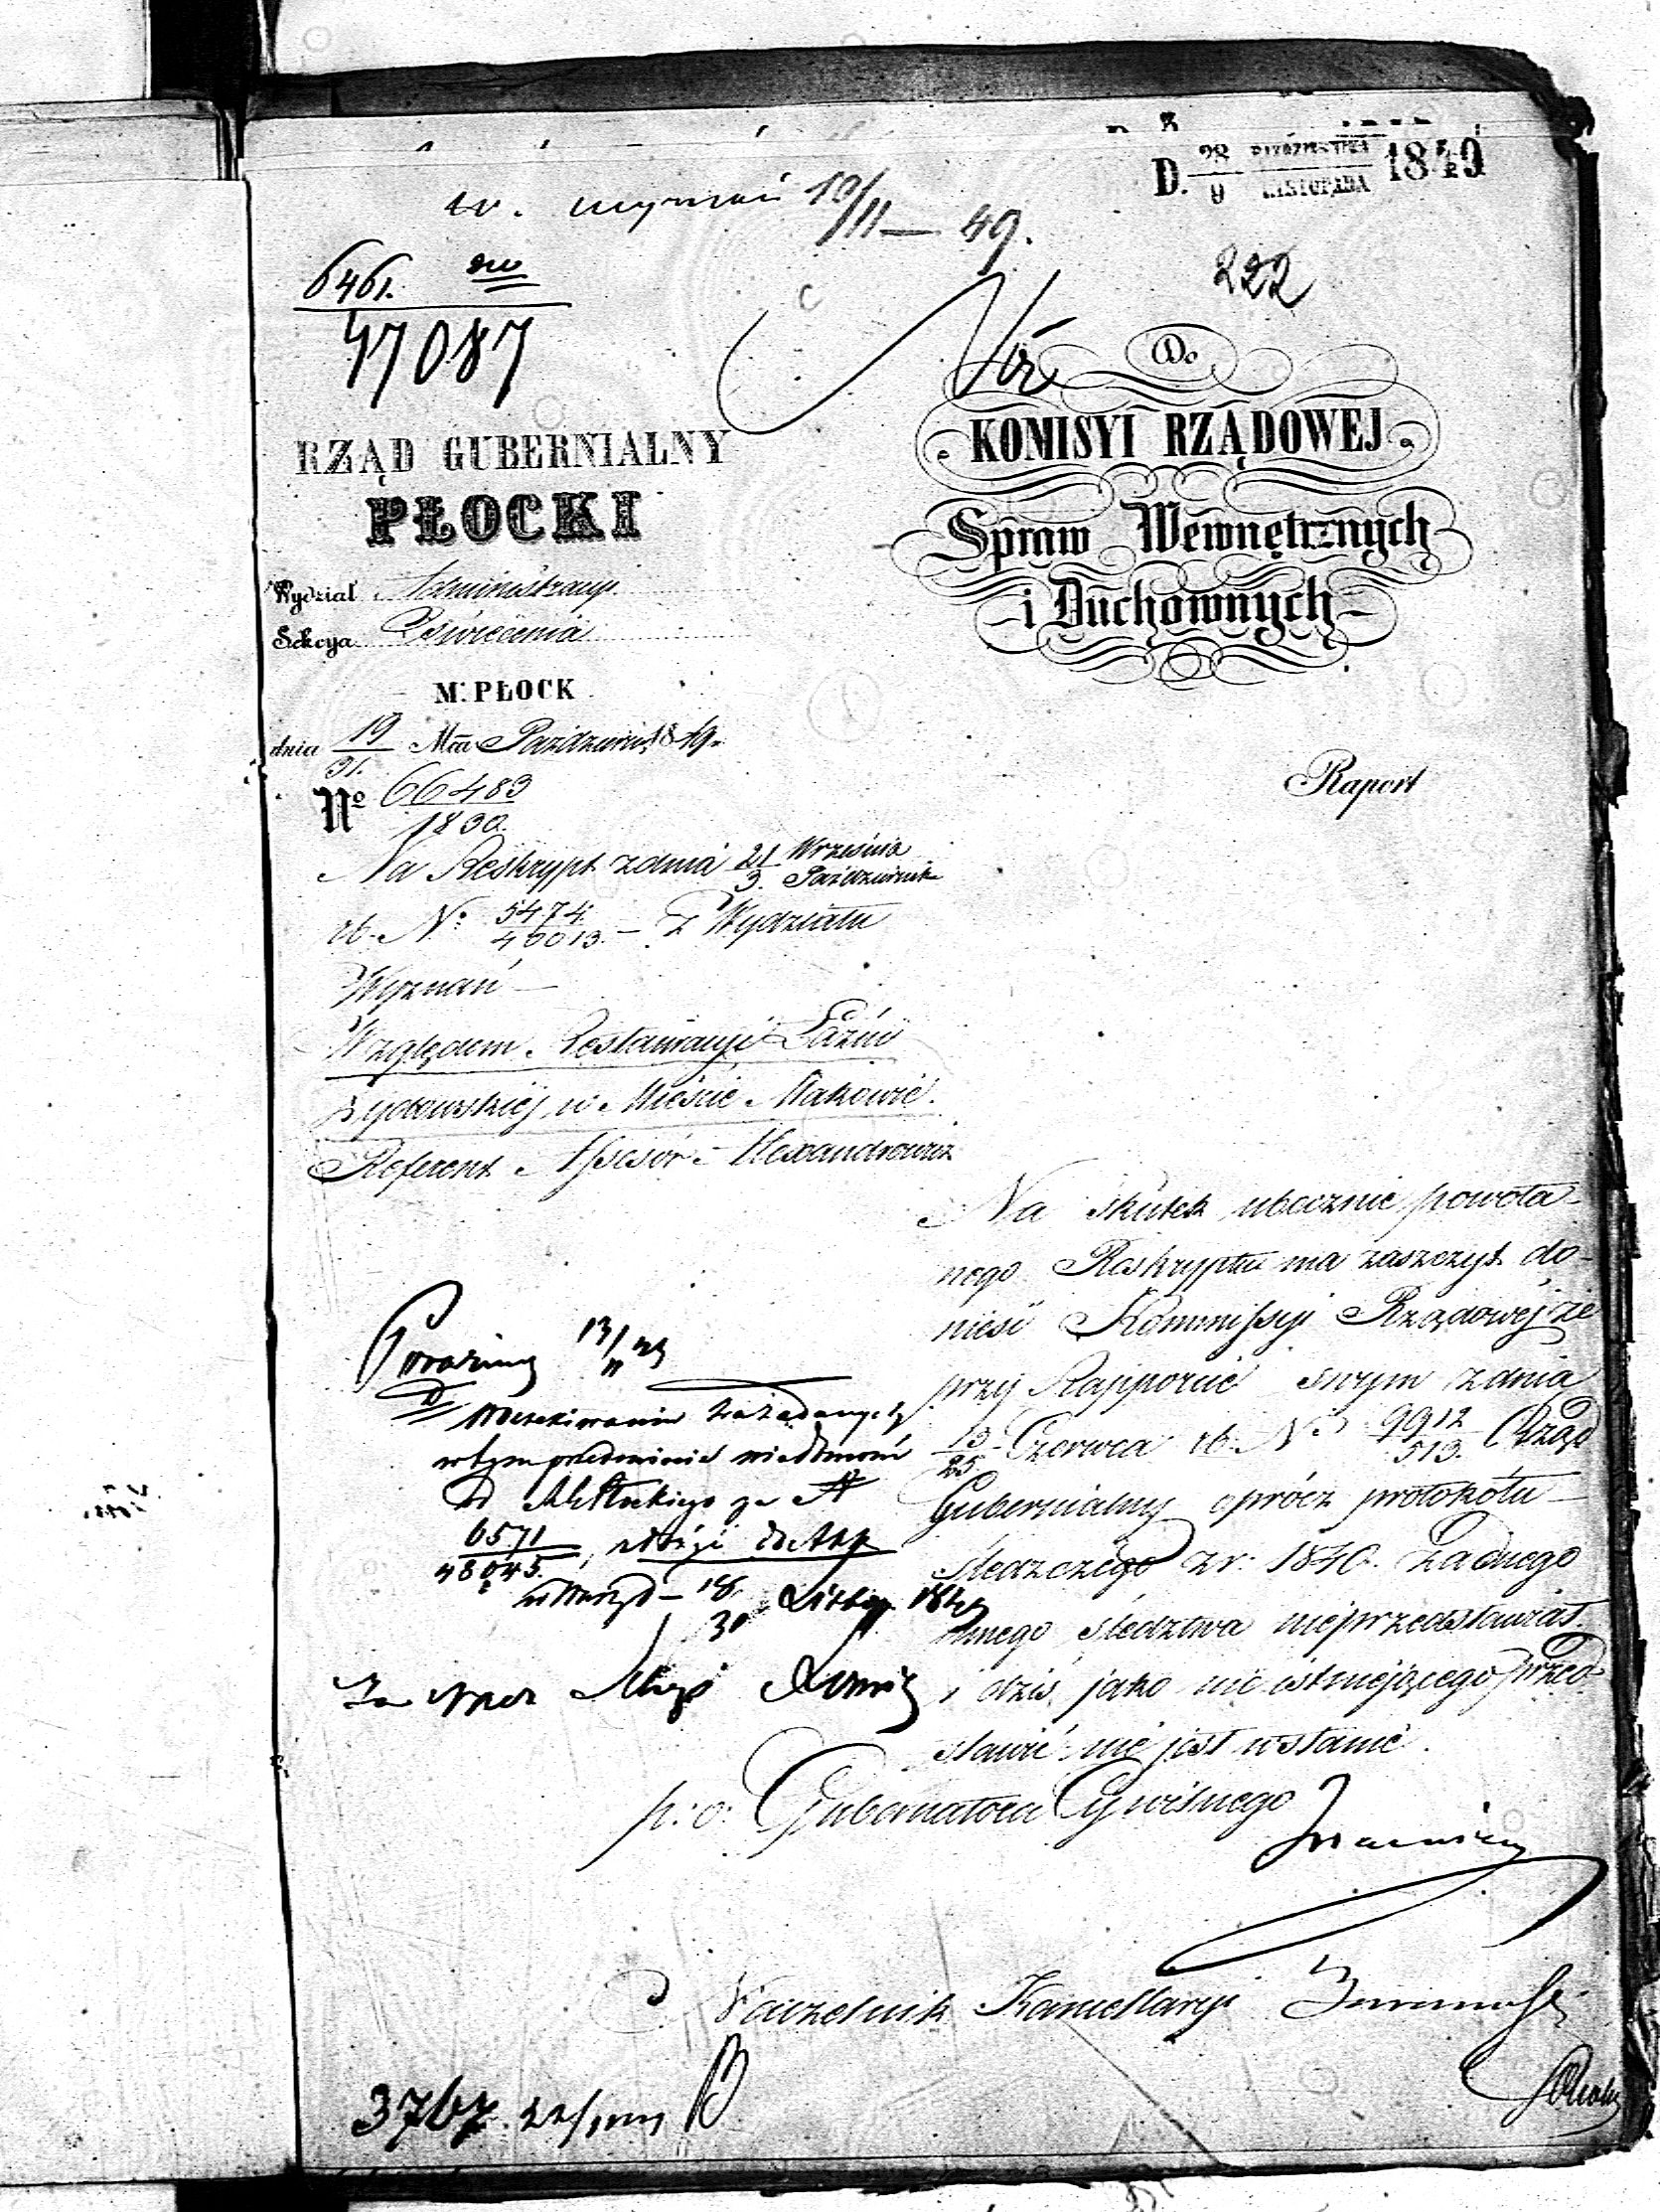 D. 28/9 PAŹDZIERNIKA LISTOPADA 1849
w. wyznań 10/11 — 49.
222
6461.
47087
Do
KOMISYI RZĄDOWEJ
Spraw Wewnętrznych
i Duchownych
RZĄD GUBERNIALNY
PŁOCKI
Wydział Administracyi
Sekcya Oświecenia
M. PŁOCK
dnia 19/31. Mca Październi 1849.
No 66483/1830.
Raport
Na Reskrypt z dnia 21/3. Września Październik
rb. No: 5474./40013. – Z Wydziału
Wyznań –
Względem Restauracyi Łaźni
Żydowskiéj w Mieście Makowie.
Referent Assesor – Alexandrowicz
Na skutek ubocznie powoła-
nego Reskryptu ma zaszczyt do-
nieść Kommissyi Rządowej że
przy Rapporcie swym z dnia
13/25. Czerwca rb. No 9912/513. Rząd
Gubernialny oprócz protokółu –
śledzczego z r: 1840. żadnego
innego śledztwa nieprzedstawiał.
i dziś jako nie istniejącego przed-
stawić nie jest w stanie.
W oczekiwaniu zażądanych
w tym przedmiocie wiadomości
6571/48045., złożyć do Akt
18/30
p: o: Gubernatora Cywilnego
Naczelnik Kancellaryi
3767.